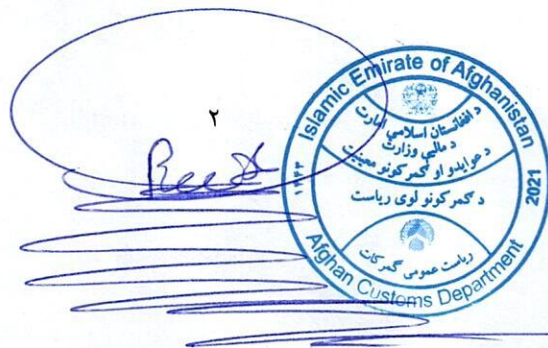 ۲
Islamic Emirate of Afghanistan
د افغانستان اسلامي امارت
د مالیې وزارت
د عوایدو او گمرکونو معینیت
د گمرکونو لوی ریاست
ریاست عمومی گمرکات
Afghan Customs Department
۱۴۴۳
2021